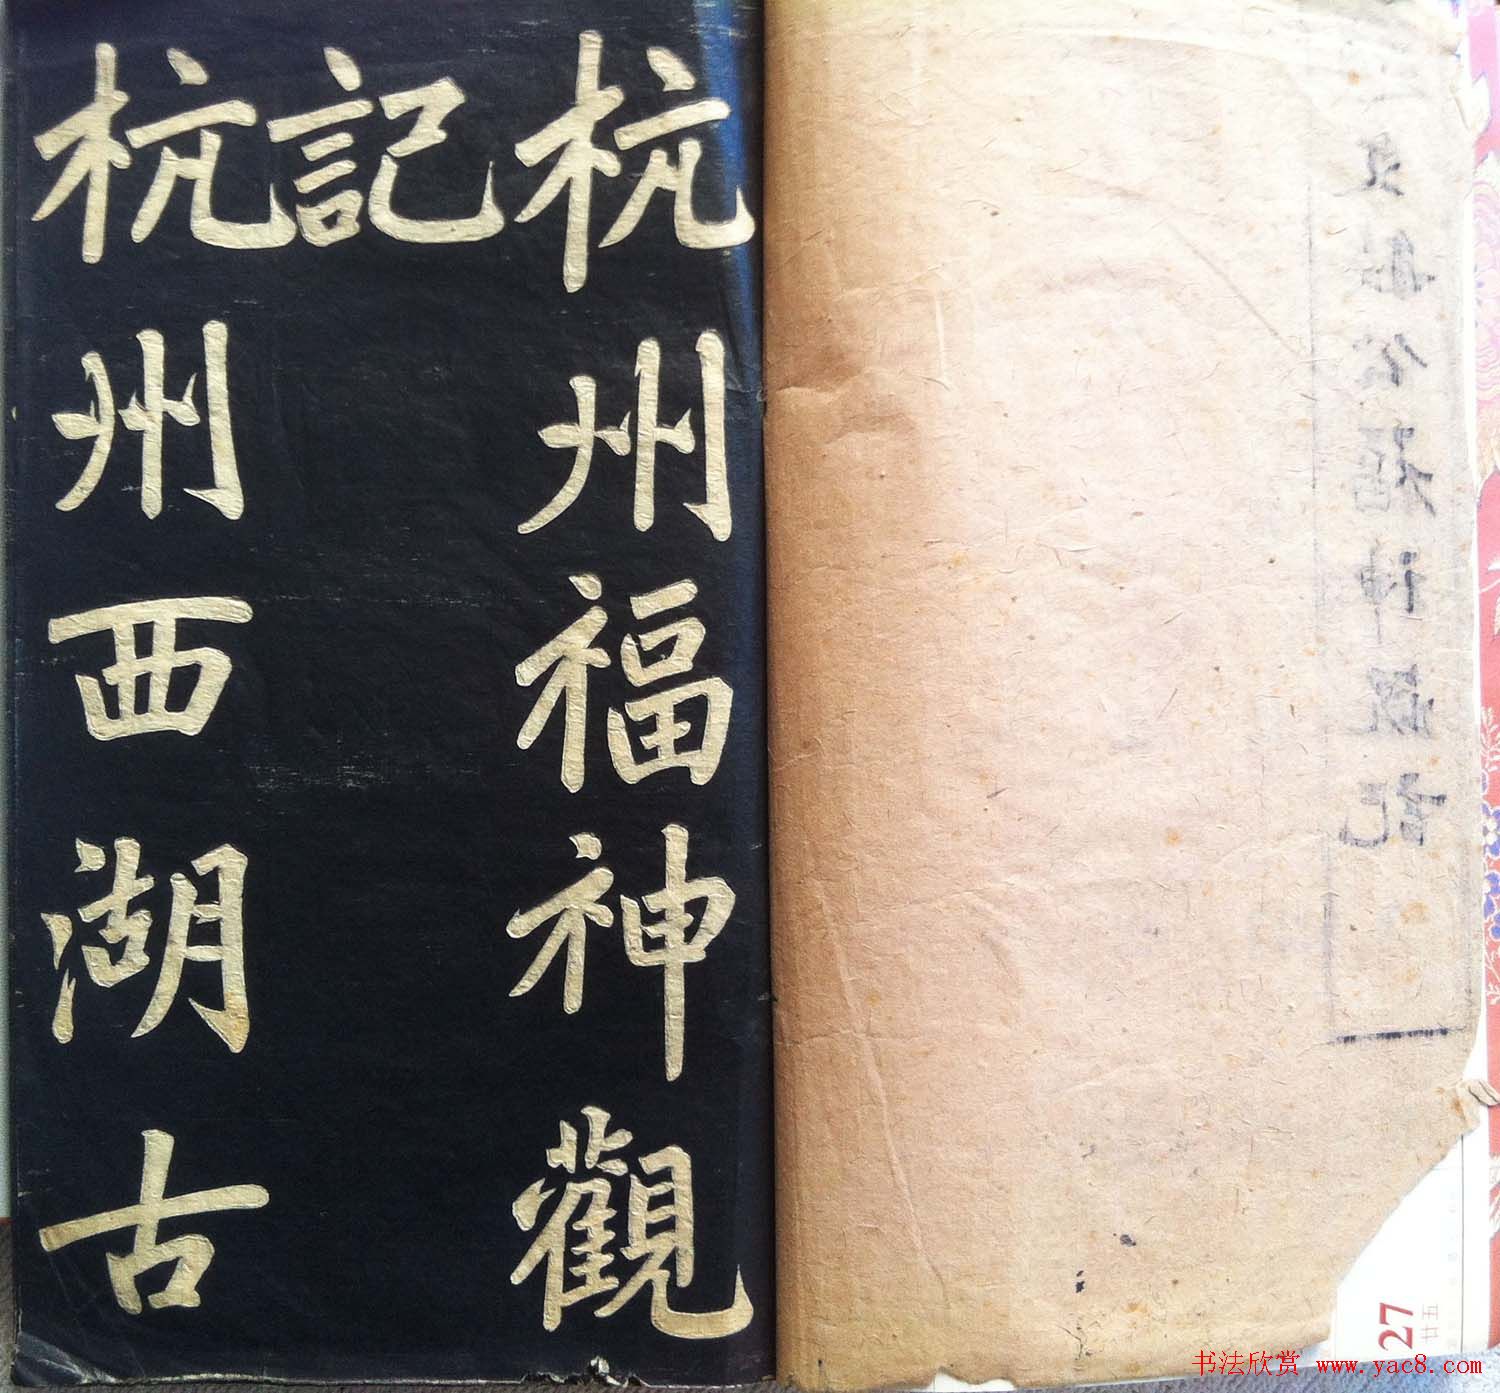 杭州福神觀
記
杭州西湖古
公福神觀記
27
廿五
书法欣赏 www.yac8.com